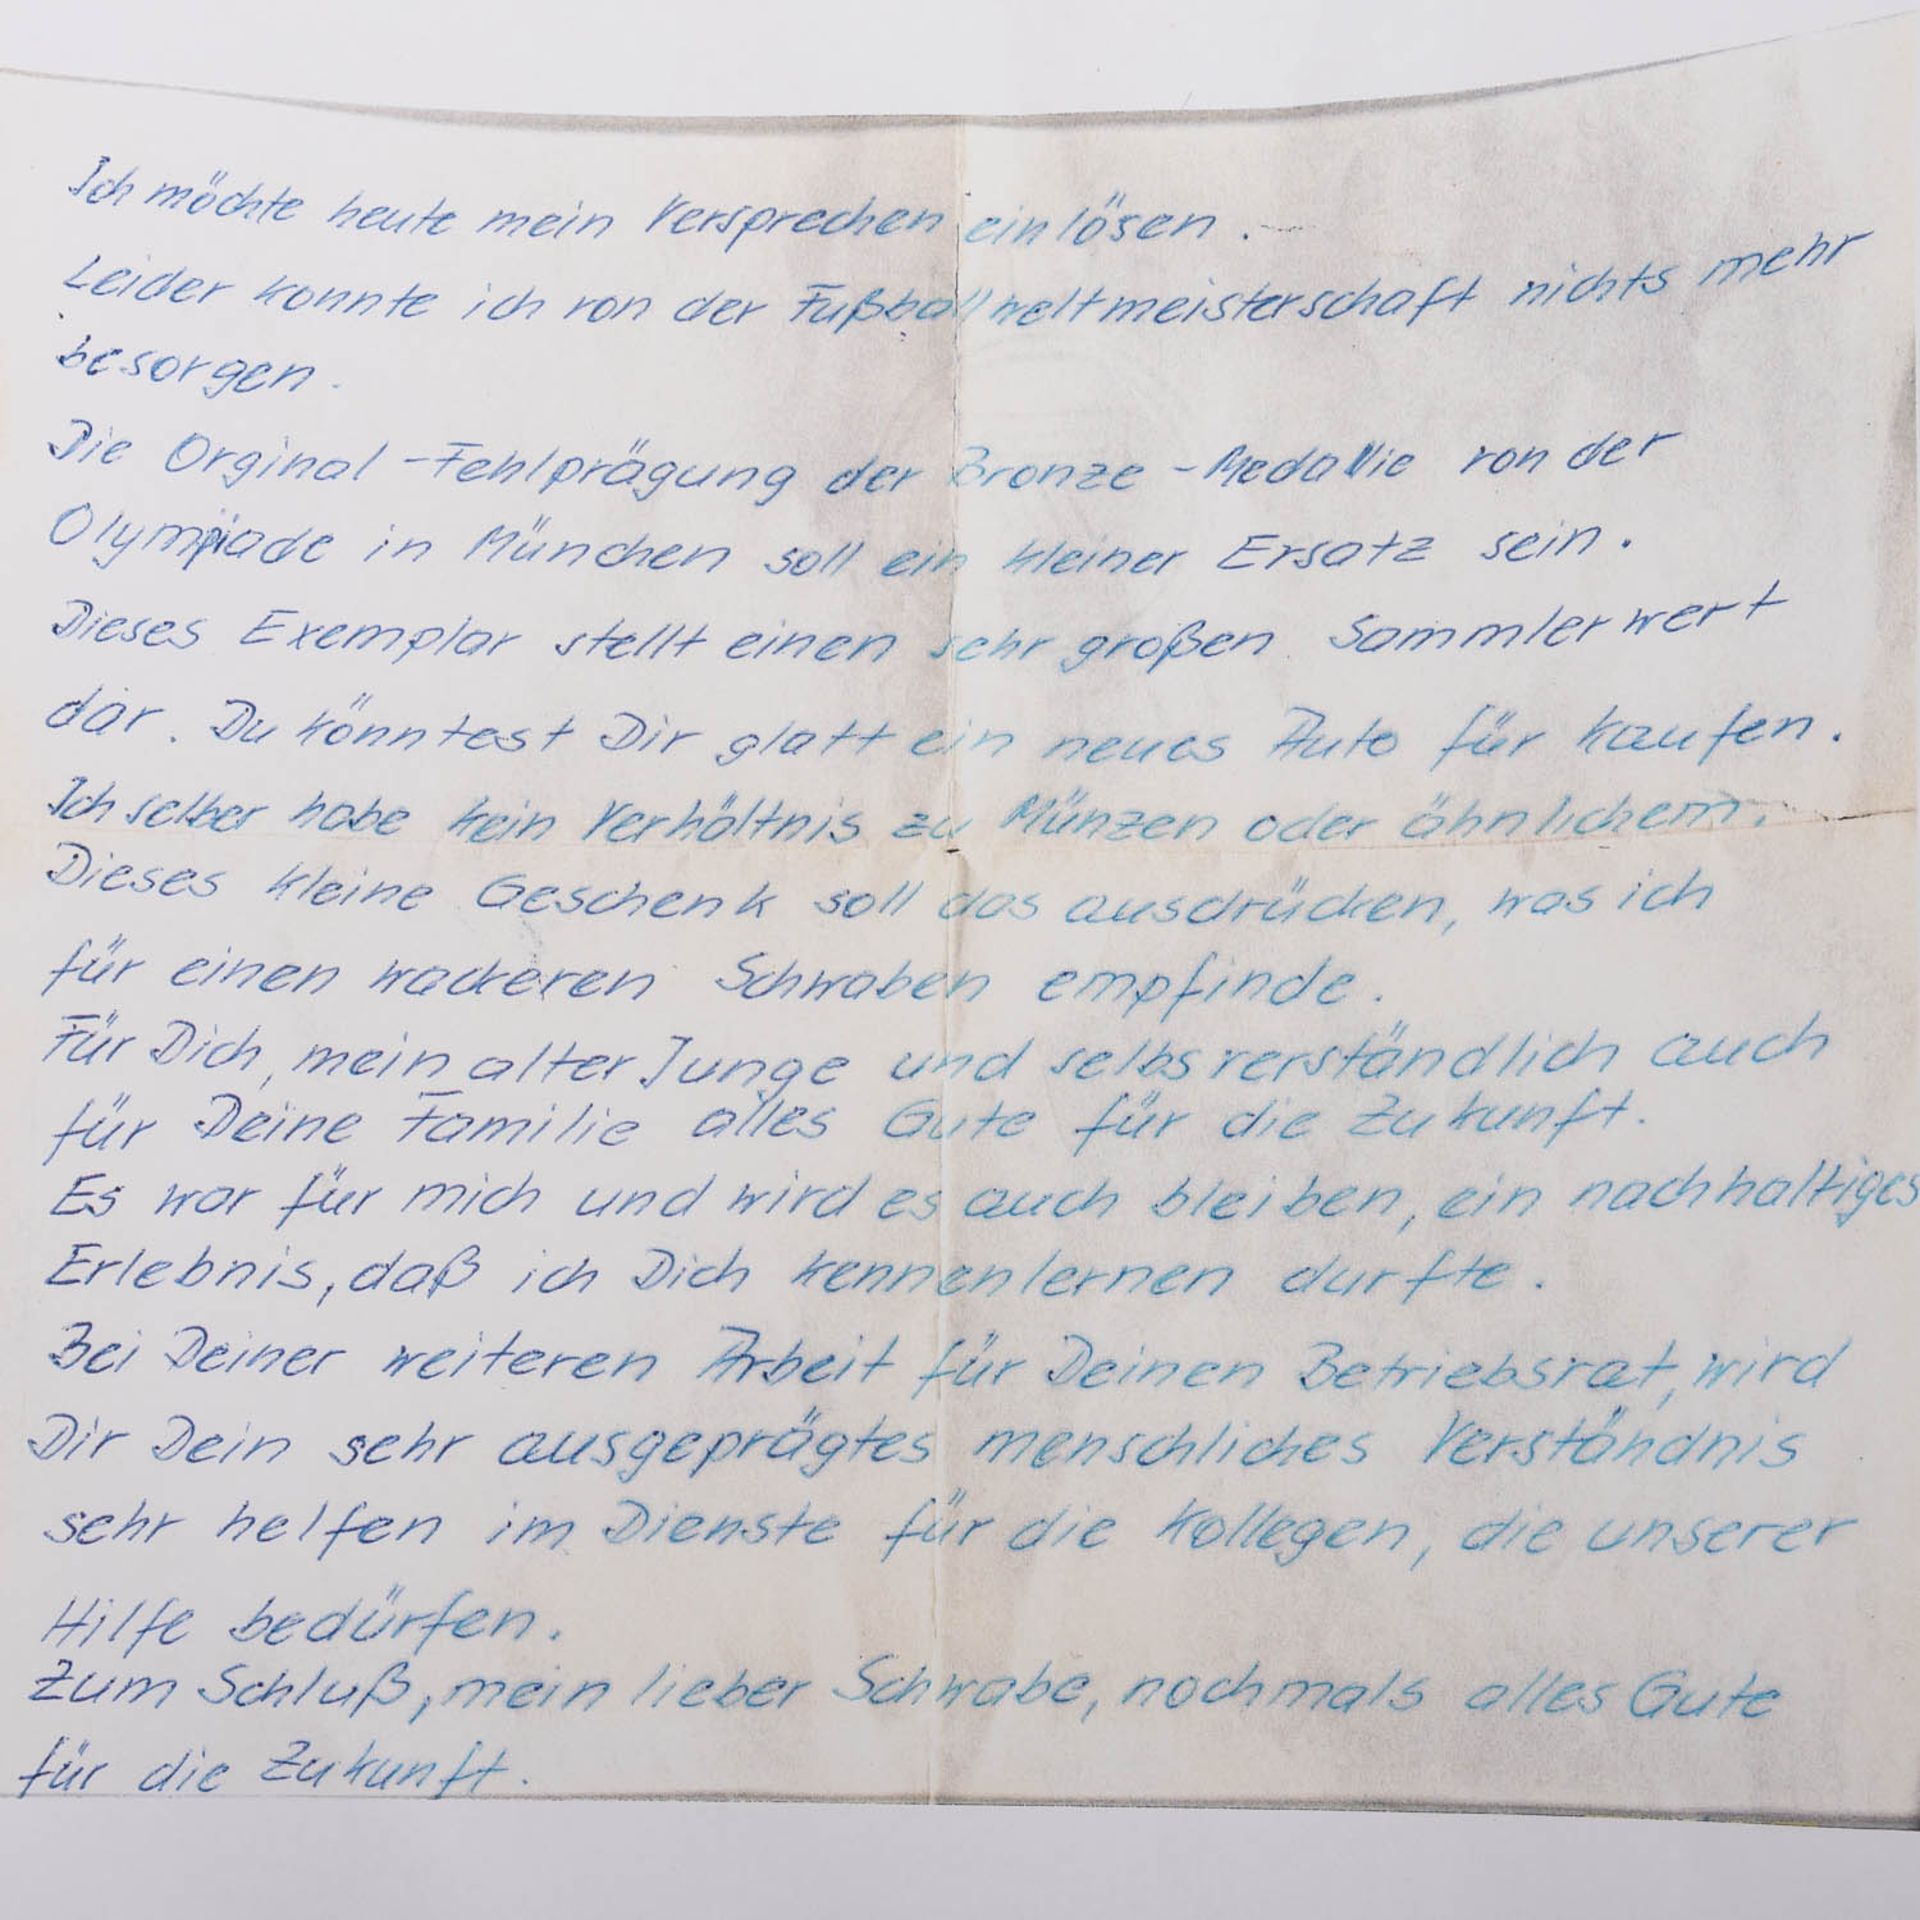 Ich möchte heute mein Versprechen einlösen.
Leider konnte ich von der Fußballweltmeisterschaft nichts mehr
besorgen.
Die Orginal-Fehlprägung der Bronze-Medallie von der
Olympiade in München soll ein kleiner Ersatz sein.
Dieses Exemplar stellt einen sehr großen Sammlerwert
dar. Du könntest Dir glatt ein neues Auto für kaufen.
Ich selber habe kein Verhältnis zu Münzen oder ähnlichem.
Dieses kleine Geschenk soll das ausdrücken, was ich
für einen wackeren Schwaben empfinde.
Für Dich, mein alter Junge und selbsverständlich auch
für Deine Familie alles Gute für die Zukunft.
Es war für mich und wird es auch bleiben, ein nachhaltiges
Erlebnis, daß ich Dich kennenlernen durfte.
Bei Deiner weiteren Arbeit für Deinen Betriebsrat, wird
Dir Dein sehr ausgeprägtes menschliches Verständnis
sehr helfen im Dienste für die Kollegen, die unserer
Hilfe bedürfen.
Zum Schluß, mein lieber Schwabe, nochmals alles Gute
für die Zukunft.